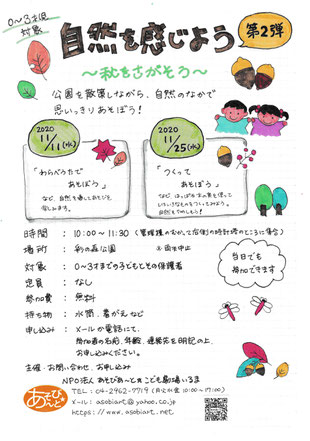 0〜3才児
対象
自然を感じよう
第2弾
〜秋をさがそう〜
公園を散策しながら、自然のなかで
思いっきりあそぼう！
2020
11/11(水)
「わらべうたで
あそぼう」
など、自然を通したあそびを
楽しみます。
2020
11/25(水)
「つくって
あそぼう」
など、はっぱや木の実を使って
自然をたのしもう！
時間 : 10:00〜11:30
場所 : 彩の森公園 ※雨天中止
対象 : 0〜3才までの子どもとその保護者
定員 : なし
参加費 : 無料
持ち物 : 水筒、着がえなど
申し込み : メールか電話にて、
参加者の名前、年齢、連絡先を明記の上、
お申し込みください。
当日でも
参加できます
主催・お問い合わせ、お申し込み
NPO法人 あそびあ〜と こども劇場いるま
TEL: 04-2962-7719 (月火木金 10:00〜17:00)
メール: asobiart@yahoo.co.jp
https://www.asobiart.net